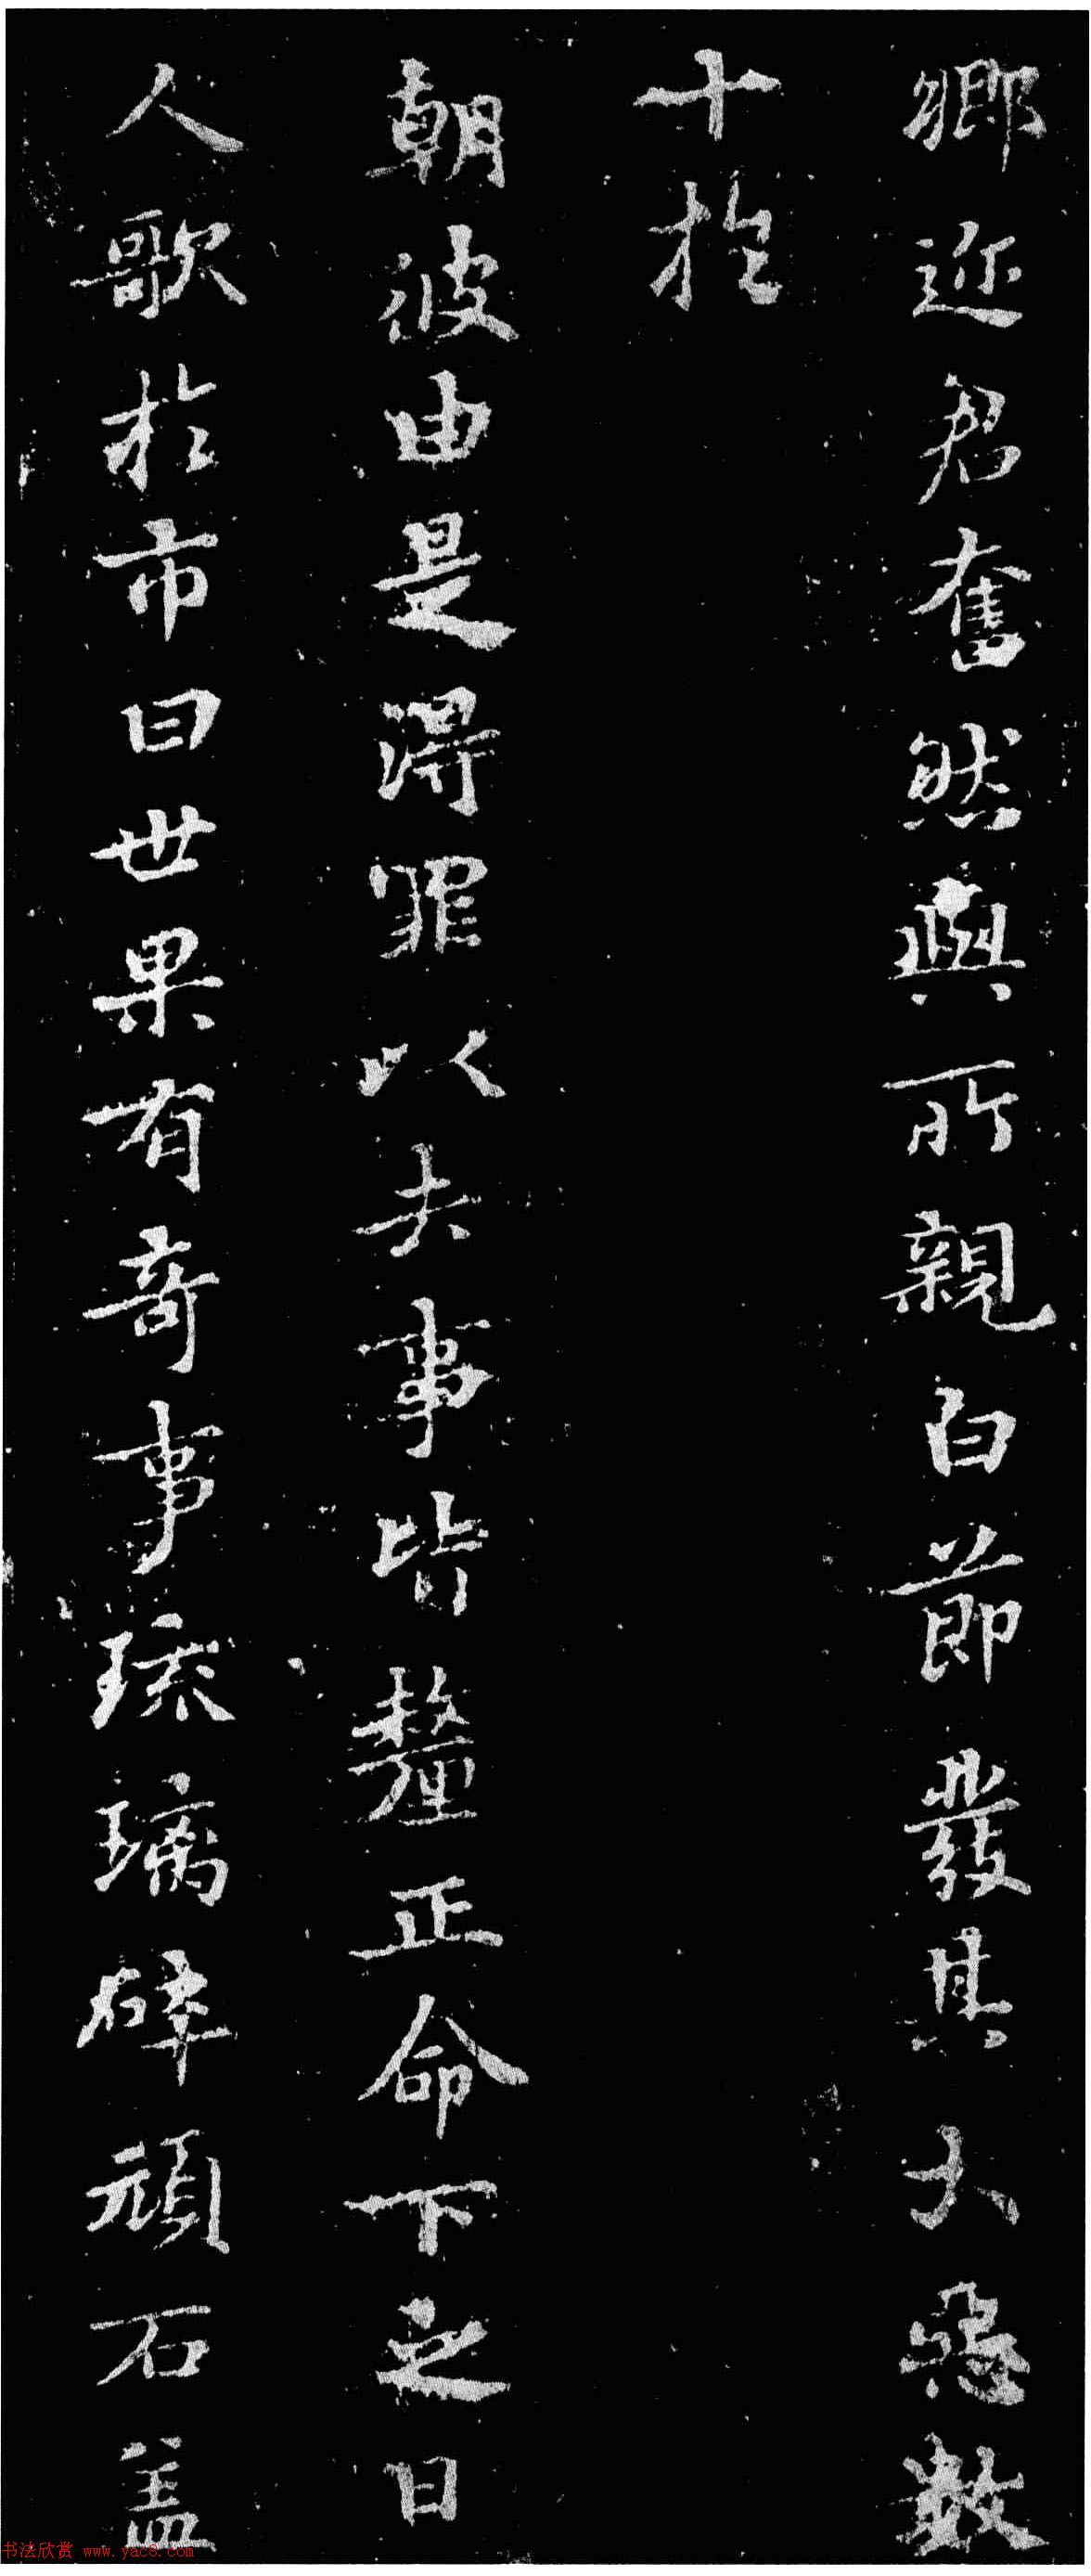 卿迩君奮然與所親白莭發其大惡數
十於
朝彼由是得罪以去事皆釐正命下之日
人歌於市曰世果有奇事琉璃碎頑石盖
书法欣赏 www.yac8.com